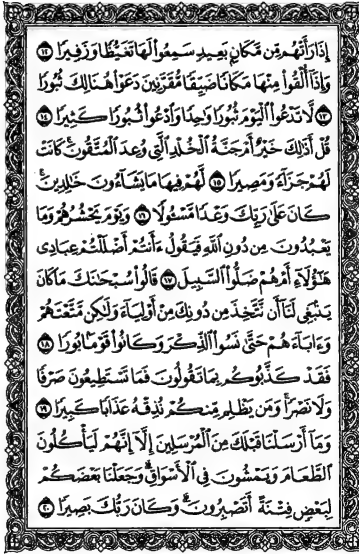 إِذَا رَأَتْهُم مِّن مَّكَانٍ بَعِيدٍ سَمِعُوا۟ لَهَا تَغَيُّظًا وَزَفِيرًا ١٢
وَإِذَآ أُلْقُوا۟ مِنْهَا مَكَانًا ضَيِّقًا مُّقَرَّنِينَ دَعَوْا۟ هُنَالِكَ ثُبُورًا
١٣ لَّا تَدْعُوا۟ ٱلْيَوْمَ ثُبُورًا وَٰحِدًا وَٱدْعُوا۟ ثُبُورًا كَثِيرًا ١٤
قُلْ أَذَٰلِكَ خَيْرٌ أَمْ جَنَّةُ ٱلْخُلْدِ ٱلَّتِى وُعِدَ ٱلْمُتَّقُونَ ۚ كَانَتْ
لَهُمْ جَزَآءً وَمَصِيرًا ١٥ لَّهُمْ فِيهَا مَا يَشَآءُونَ خَٰلِدِينَ ۚ
كَانَ عَلَىٰ رَبِّكَ وَعْدًا مَّسْـُٔولًا ١٦ وَيَوْمَ يَحْشُرُهُمْ وَمَا
يَعْبُدُونَ مِن دُونِ ٱللَّهِ فَيَقُولُ ءَأَنتُمْ أَضْلَلْتُمْ عِبَادِى
هَٰٓؤُلَآءِ أَمْ هُمْ ضَلُّوا۟ ٱلسَّبِيلَ ١٧ قَالُوا۟ سُبْحَٰنَكَ مَا كَانَ
يَنۢبَغِى لَنَآ أَن نَّتَّخِذَ مِن دُونِكَ مِنْ أَوْلِيَآءَ وَلَٰكِن مَّتَّعْتَهُمْ
وَءَابَآءَهُمْ حَتَّىٰ نَسُوا۟ ٱلذِّكْرَ وَكَانُوا۟ قَوْمًۢا بُورًا ١٨
فَقَدْ كَذَّبُوكُم بِمَا تَقُولُونَ فَمَا تَسْتَطِيعُونَ صَرْفًا
وَلَا نَصْرًا ۚ وَمَن يَظْلِم مِّنكُمْ نُذِقْهُ عَذَابًا كَبِيرًا ١٩
وَمَآ أَرْسَلْنَا قَبْلَكَ مِنَ ٱلْمُرْسَلِينَ إِلَّآ إِنَّهُمْ لَيَأْكُلُونَ
ٱلطَّعَامَ وَيَمْشُونَ فِى ٱلْأَسْوَاقِ ۗ وَجَعَلْنَا بَعْضَكُمْ
لِبَعْضٍ فِتْنَةً أَتَصْبِرُونَ ۗ وَكَانَ رَبُّكَ بَصِيرًا ٢٠